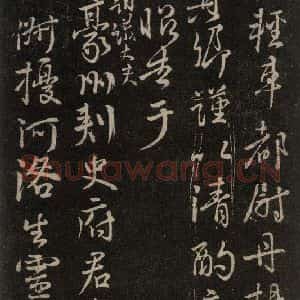 輕車都尉丹楊
真卿謹以清酌
昭告于
朝議大夫
豪州刺史府君
俶擾河洛生靈
Shufawang.CN